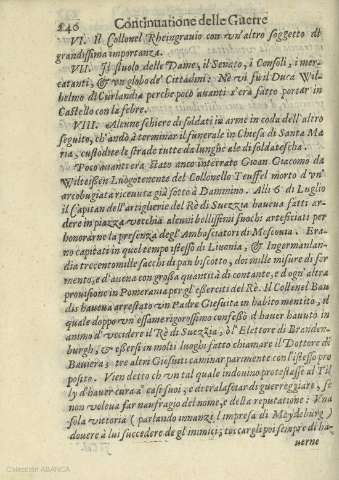 246 Continuatione delle Guerre
VI. Il Collonel Rheingravio con vn'altro soggetto di
grandissima importanza.
VII. Il stuolo delle Dame, il Senato, i Consoli, i mer-
catanti, & vn globo de' Cittadini: Ne vi fu il Duca Wil-
helmo di Curlandia perche poco auanti s'era fatto portar in
Castello con la febre.
VIII. Alcune schiere di soldati in arme in coda dell'altro
seguito, ch'andò à terminar il funerale in Chiesa di Santa Ma
ria, custodite le strade tutte da lunghe ale di soldatescha.
Poco auanti era stato anco interrato Gioan Giacomo da
Wilteissen Luogotenente del Collonello Teuffel morto d'vn'
arcobugiata riceuuta già sotto à Dammino. Alli 6 di Luglio
il Capitan dell'artiglierie del Rè di Suezzia haueua fatti ar-
dere in piazza vecchia alcuni bellissimi fuochi artefitiati per
honorarne la presenza degl'Ambasciatori di Moscouia. Era-
no capitati in quel tempo istesso di Liuonia, & Ingermanlan-
dia trecento mille sacchi di pan biscotto, doi mille misure di for
mento, e d'auena con großa quantità di contante, e d'ogn'altra
prouisione in Pomerania per gl'eßerciti del Rè. Il Collonel Bau
dis haueua arrestato vn Padre Giesuita in habito mentito, il
quale doppo vn essame rigorossimo confeßò d'hauer hauuto in
animo d'vccidere il Rè di Suezzia, ò l'Elettore di Branden-
burgh, & eßersi in molti luoghi fatto chiamare il Dottore di
Bauiera; tre altri Giesuiti caminar parimente con l'istesso pro
posito. Vien detto ch'vn tal quale indouino protestasse al Til
ly d'hauer cura a' casi suoi; e de tralasciar di guerreggiare, se
non voleua far naufragio del nome, e della reputatione: Vna
sola vittoria (parlando innanzi l'impresa di Meydeburg)
douere à lui succedere de gl'inimici; toccargli poi sempre di ha
uerne
Colección ABANCA